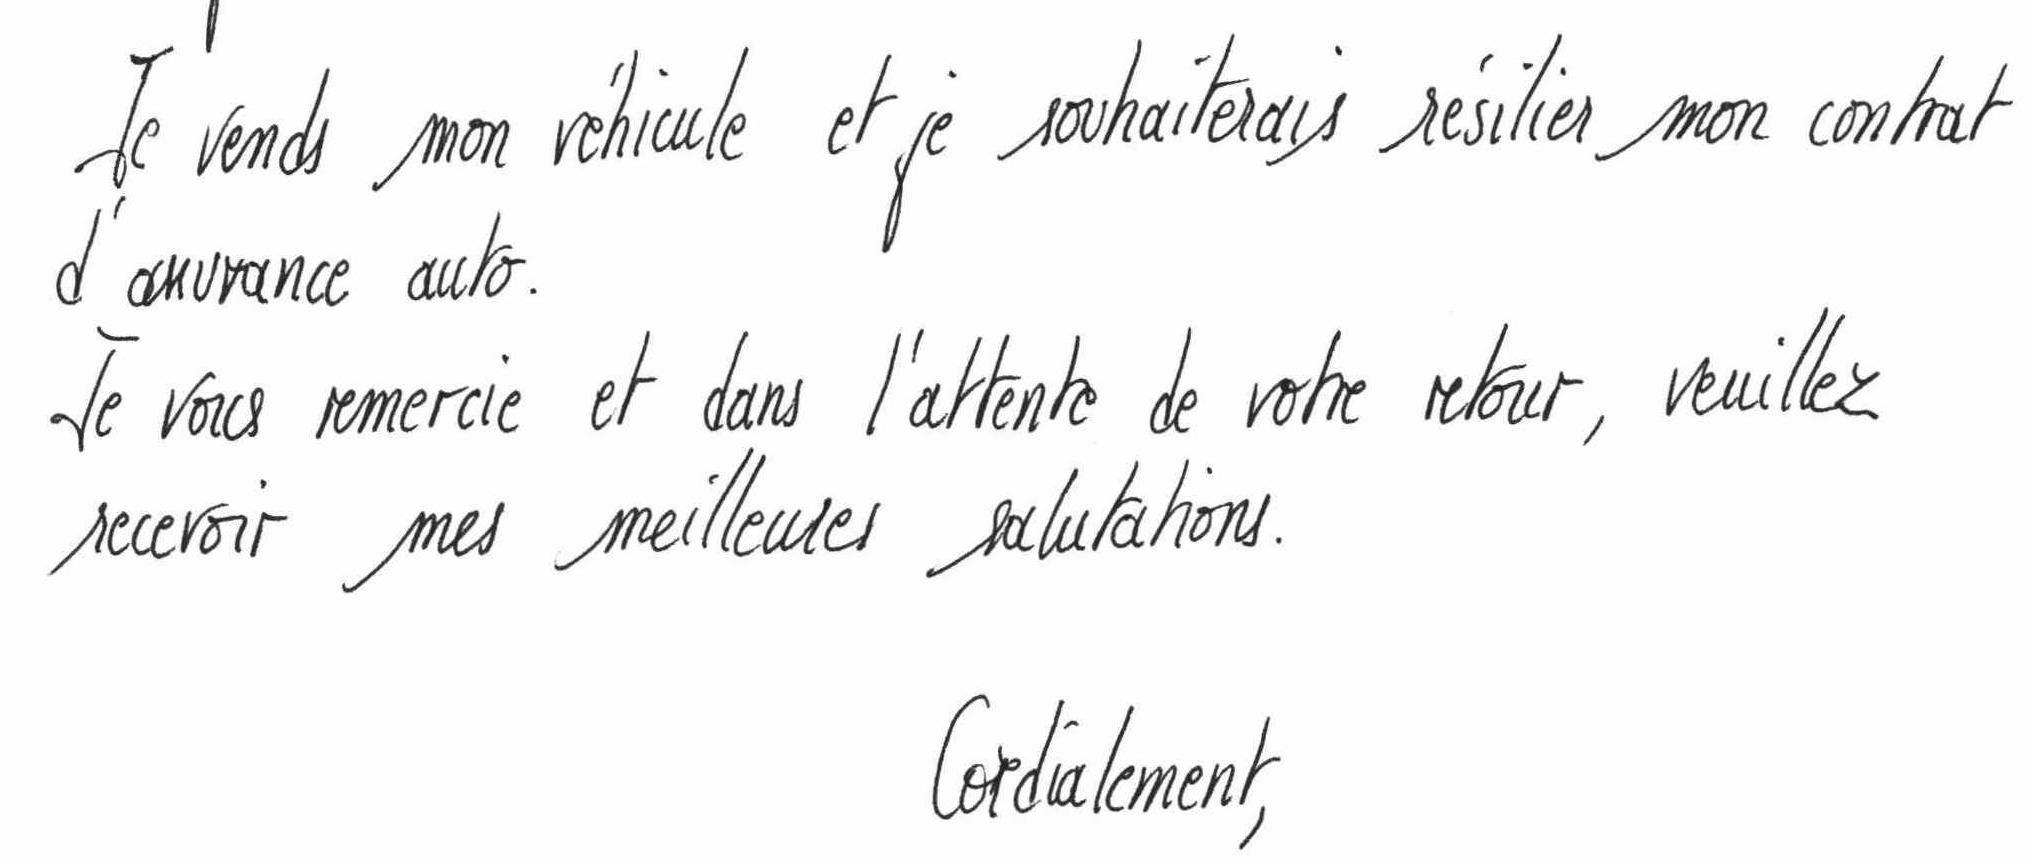 Je vends mon véhicule et je souhaiterais résilier mon contrat
d'assurance auto.
Je vous remercie et dans l'attente de votre retour, veuillez
recevoir mes meilleures salutations.
Cordialement,